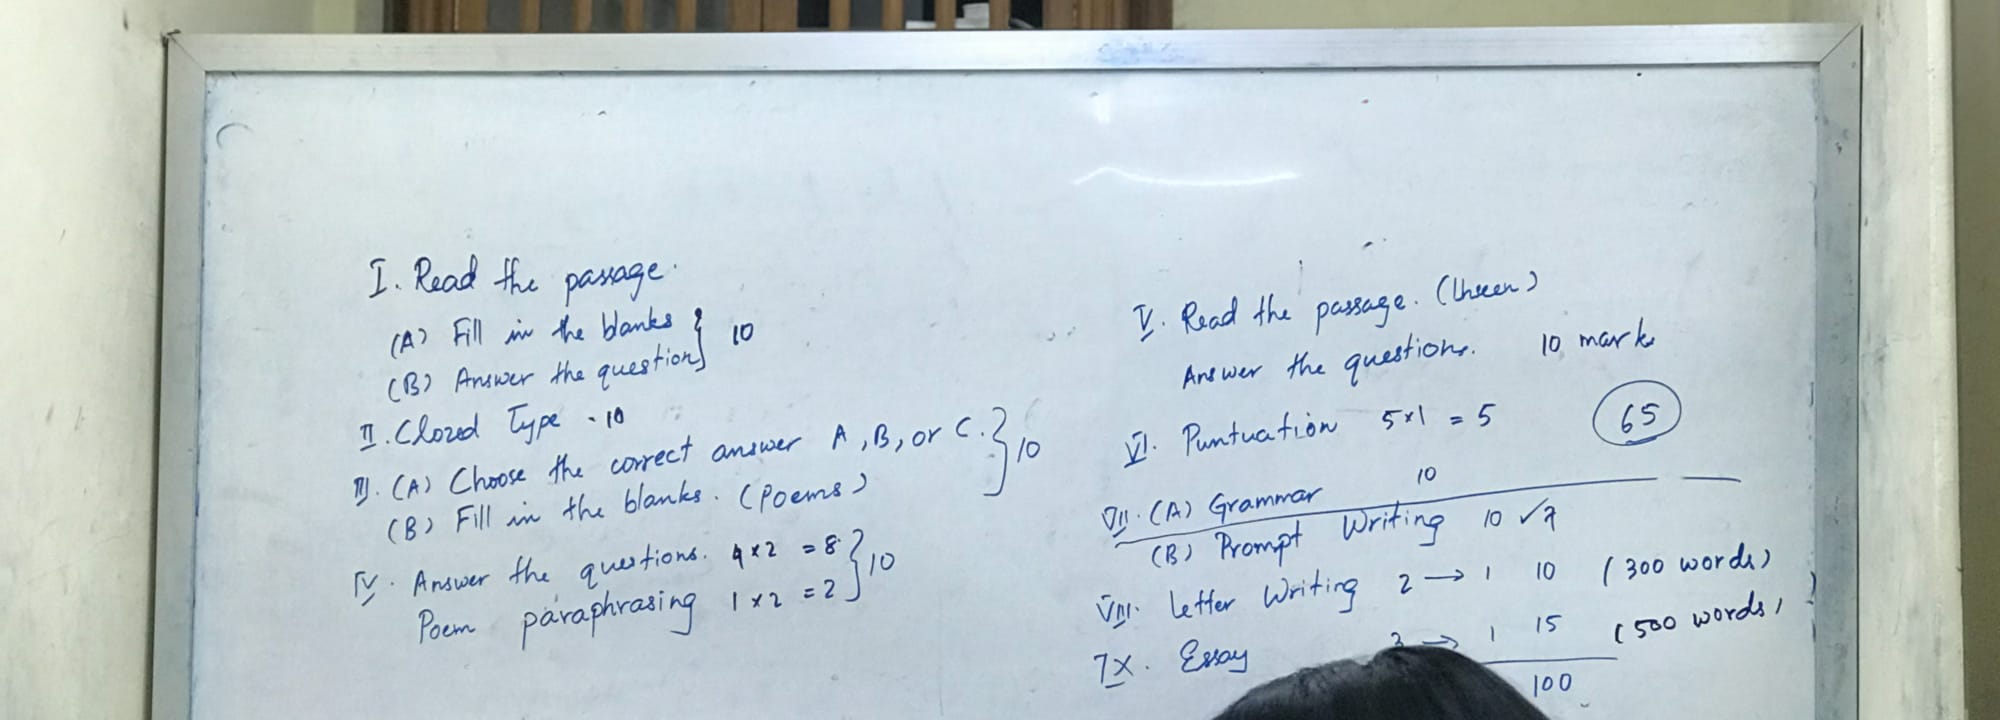 I. Read the passage.
(A) Fill in the blanks } 10
(B) Answer the question
II. Clozed Type - 10
III. (A) Choose the correct answer A, B, or C. } 10
(B) Fill in the blanks. (Poems)
IV. Answer the questions. 4 x 2 = 8 } 10
Poem paraphrasing 1 x 2 = 2
V. Read the passage. (Unseen)
Answer the questions. 10 marks
VI. Puntuation 5 x 1 = 5 65
VII. (A) Grammar 10
(B) Prompt Writing 10 ✓
VIII. Letter Writing 2 → 1 10 (300 words)
IX. Essay 3 → 1 15 (500 words)
100